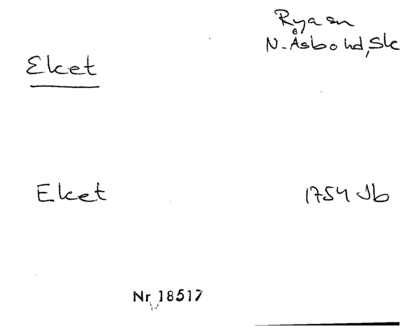 Ryasn
N. Åsbo hd, Sk
Eket
Eket 1754 Jb
Nr 18517